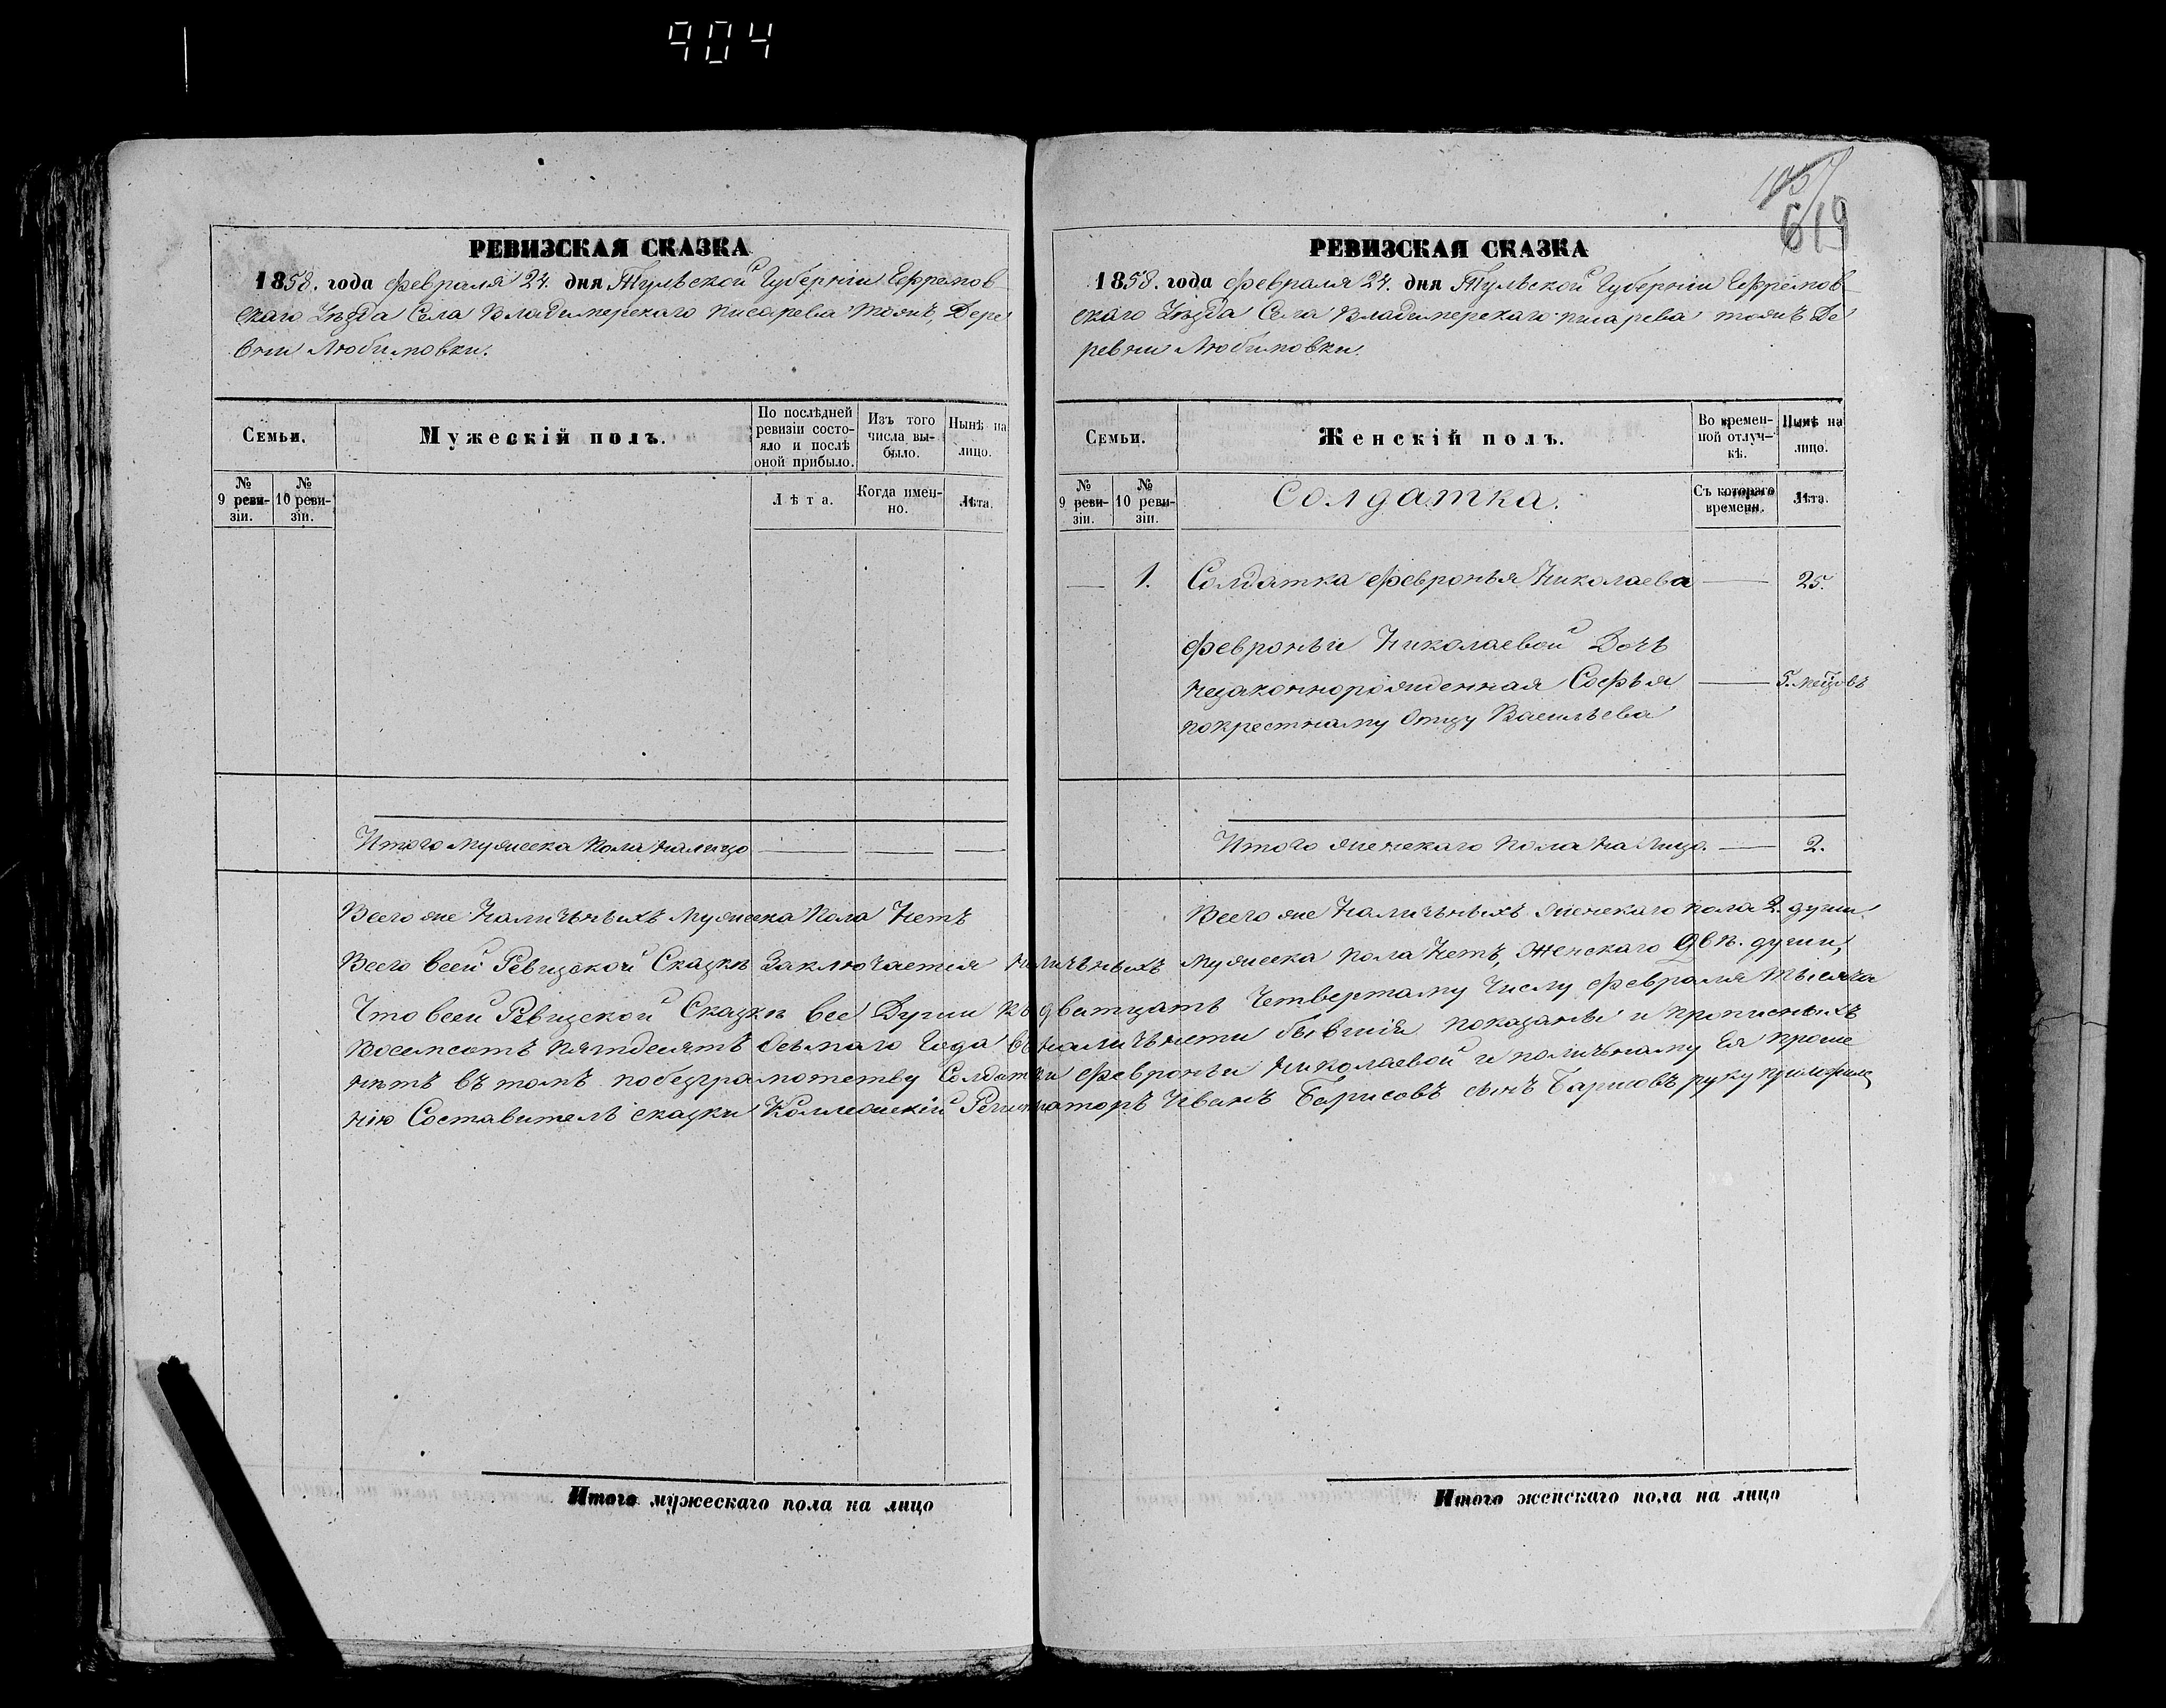 904
1057
619
РЕВИЗСКАЯ СКАЗКА
1858. года Февраля 24. дня Тульской Губерніи Ефремов
скаго Уѣзда Села Владимерскаго Писарева тожъ, Дере
вни Любимовки.
Семьи.
Мужескій полъ.
По послѣдней ревизіи состо-
яло и послѣ
оной прибыло.
Изъ того
числа вы-
было.
Нынѣ на
лицо.
№
9 реви-
зіи.
№
10 реви-
зіи.
Лѣта.
Когда имен-
но.
Лѣта.
Итого мужеска пола налицо
Всего же Наличьныхъ Мужеска Пола Нетъ
РЕВИЗСКАЯ СКАЗКА
1858. года Февраля 24. дня Тульской Губерніи Ефремов
скаго Уѣзда Села Владимерскаго писарева тожъ Де
ревни Любимовки.
Семьи.
Женскій полъ.
Во времен-
ной отлуч-
кѣ.
Нынѣ на
лицо.
№
9 реви-
зіи.
№
10 реви-
зіи.
Солдатка.
Съ котораго
времени.
Лѣта.
1. Солдатка Февронья Николаева 25.
Февроньи Николаевой Дочь
незаконнорожденная Софья 5. мѣцовъ
покрестному Отцу Васильева
Итого женскаго пола на лицо. 2.
Всего же Наличьныхъ женскаго пола 2. души.
Всего всей Ревизской Сказкѣ Заключается наличьныхъ мужеска пола Нетъ, Женскаго двѣ. души,
Что всей Ревизской Сказкѣ все Души по дватцать Четвертому Числу Февраля тысяча
восемсотъ пятдесятъ Осьмаго Года въ наличьности бывшія показаны и прописныхъ
нѣтъ въ томъ побезграмотству Солдатки Февроньи Николаевой и поличьному Ея проше
нію Составитель сказки Коллежскій Регистраторъ Иванъ Барисовъ сынъ Барисовъ руку приложилъ
Итого мужескаго пола на лицо
Итого женскаго пола на лицо